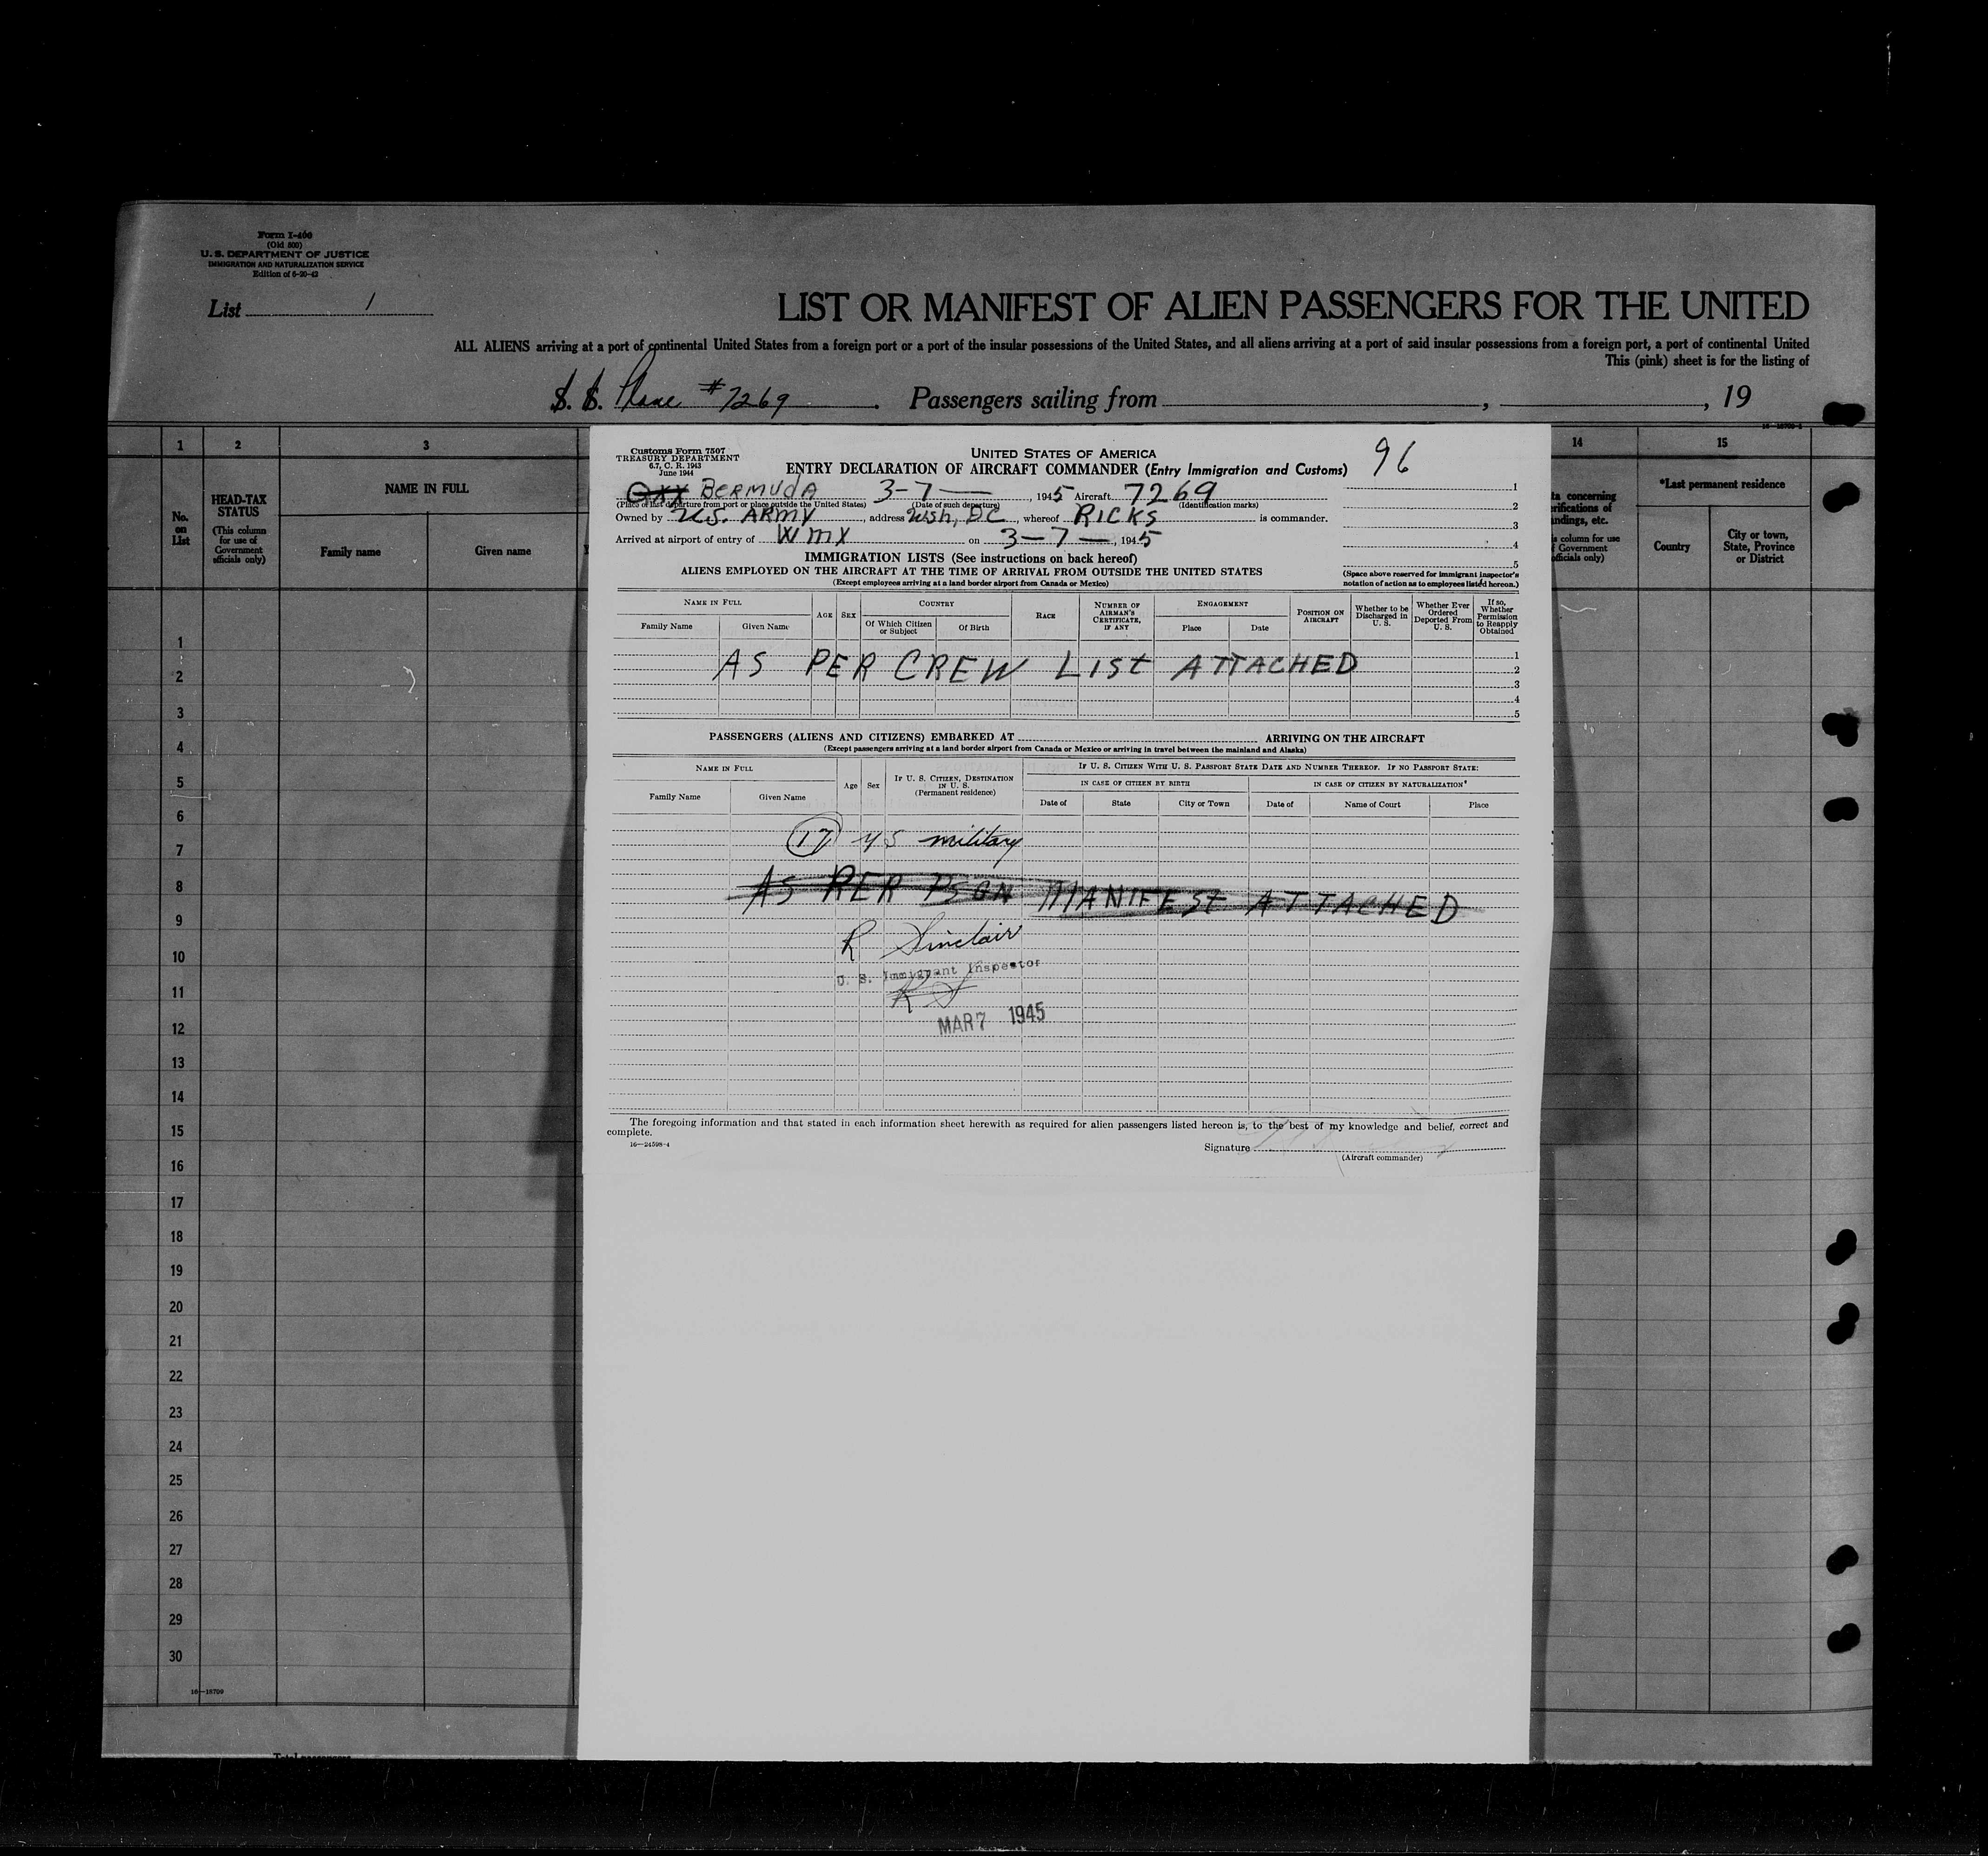 Form I-466
(Old 500)
U. S. DEPARTMENT OF JUSTICE
IMMIGRATION AND NATURALIZATION SERVICE
Edition of 6-20-42
List 1
LIST OR MANIFEST OF ALIEN PASSENGERS FOR THE UNITED
ALL ALIENS arriving at a port of continental United States from a foreign port or a port of the insular possessions of the United States, and all aliens arriving at a port of said insular possessions from a foreign port, a port of continental United
This (pink) sheet is for the listing of
S. S. Plane #7269 . Passengers sailing from , , 19
1 2 3 14 15
No. on List
HEAD-TAX STATUS
(This column for use of Government officials only)
NAME IN FULL
Family name Given name
*Last permanent residence
Country City or town, State, Province or District
ta concerning
rifications of
ndings, etc.
s column for use
Government
officials only)
Customs Form 7507
TREASURY DEPARTMENT
6.7, C. R. 1943
June 1944
UNITED STATES OF AMERICA
ENTRY DECLARATION OF AIRCRAFT COMMANDER (Entry Immigration and Customs)
96
BERMUDA 3-7- , 1945 Aircraft 7269
(Place of last departure from port or place outside the United States) (Date of such departure) (Identification marks)
Owned by U.S. ARMY, address Wsh, DC, whereof RICKS is commander.
Arrived at airport of entry of WMX on 3-7-, 1945
1
2
3
4
5
IMMIGRATION LISTS (See instructions on back hereof)
ALIENS EMPLOYED ON THE AIRCRAFT AT THE TIME OF ARRIVAL FROM OUTSIDE THE UNITED STATES
(Except employees arriving at a land border airport from Canada or Mexico)
(Space above reserved for immigrant inspector's
notation of action as to employees listed hereon.)
NAME IN FULL
Family Name Given Name
AGE SEX
COUNTRY
Of Which Citizen or Subject Of Birth
RACE
NUMBER OF AIRMAN'S CERTIFICATE, IF ANY
ENGAGEMENT
Place Date
POSITION ON AIRCRAFT
Whether to be Discharged in U. S.
Whether Ever Ordered Deported From U. S.
If so, Whether Permission to Reapply Obtained
AS PER CREW LIST ATTACHED
1
2
3
4
5
PASSENGERS (ALIENS AND CITIZENS) EMBARKED AT ARRIVING ON THE AIRCRAFT
(Except passengers arriving at a land border airport from Canada or Mexico or arriving in travel between the mainland and Alaska)
NAME IN FULL
Family Name Given Name
Age Sex
IF U. S. CITIZEN, DESTINATION IN U. S.
(Permanent residence)
IF U. S. CITIZEN WITH U. S. PASSPORT STATE DATE AND NUMBER THEREOF. IF NO PASSPORT STATE:
IN CASE OF CITIZEN BY BIRTH IN CASE OF CITIZEN BY NATURALIZATION*
Date of State City or Town Date of Name of Court Place
17 US military
AS PER PSGN MANIFEST ATTACHED
R Sinclair
U. S. Immigrant Inspector
RS
MAR 7 1945
The foregoing information and that stated in each information sheet herewith as required for alien passengers listed hereon is, to the best of my knowledge and belief, correct and
complete.
16—24598-4
Signature
(Aircraft commander)
1
2
3
4
5
6
7
8
9
10
11
12
13
14
15
16
17
18
19
20
21
22
23
24
25
26
27
28
29
30
16—18709